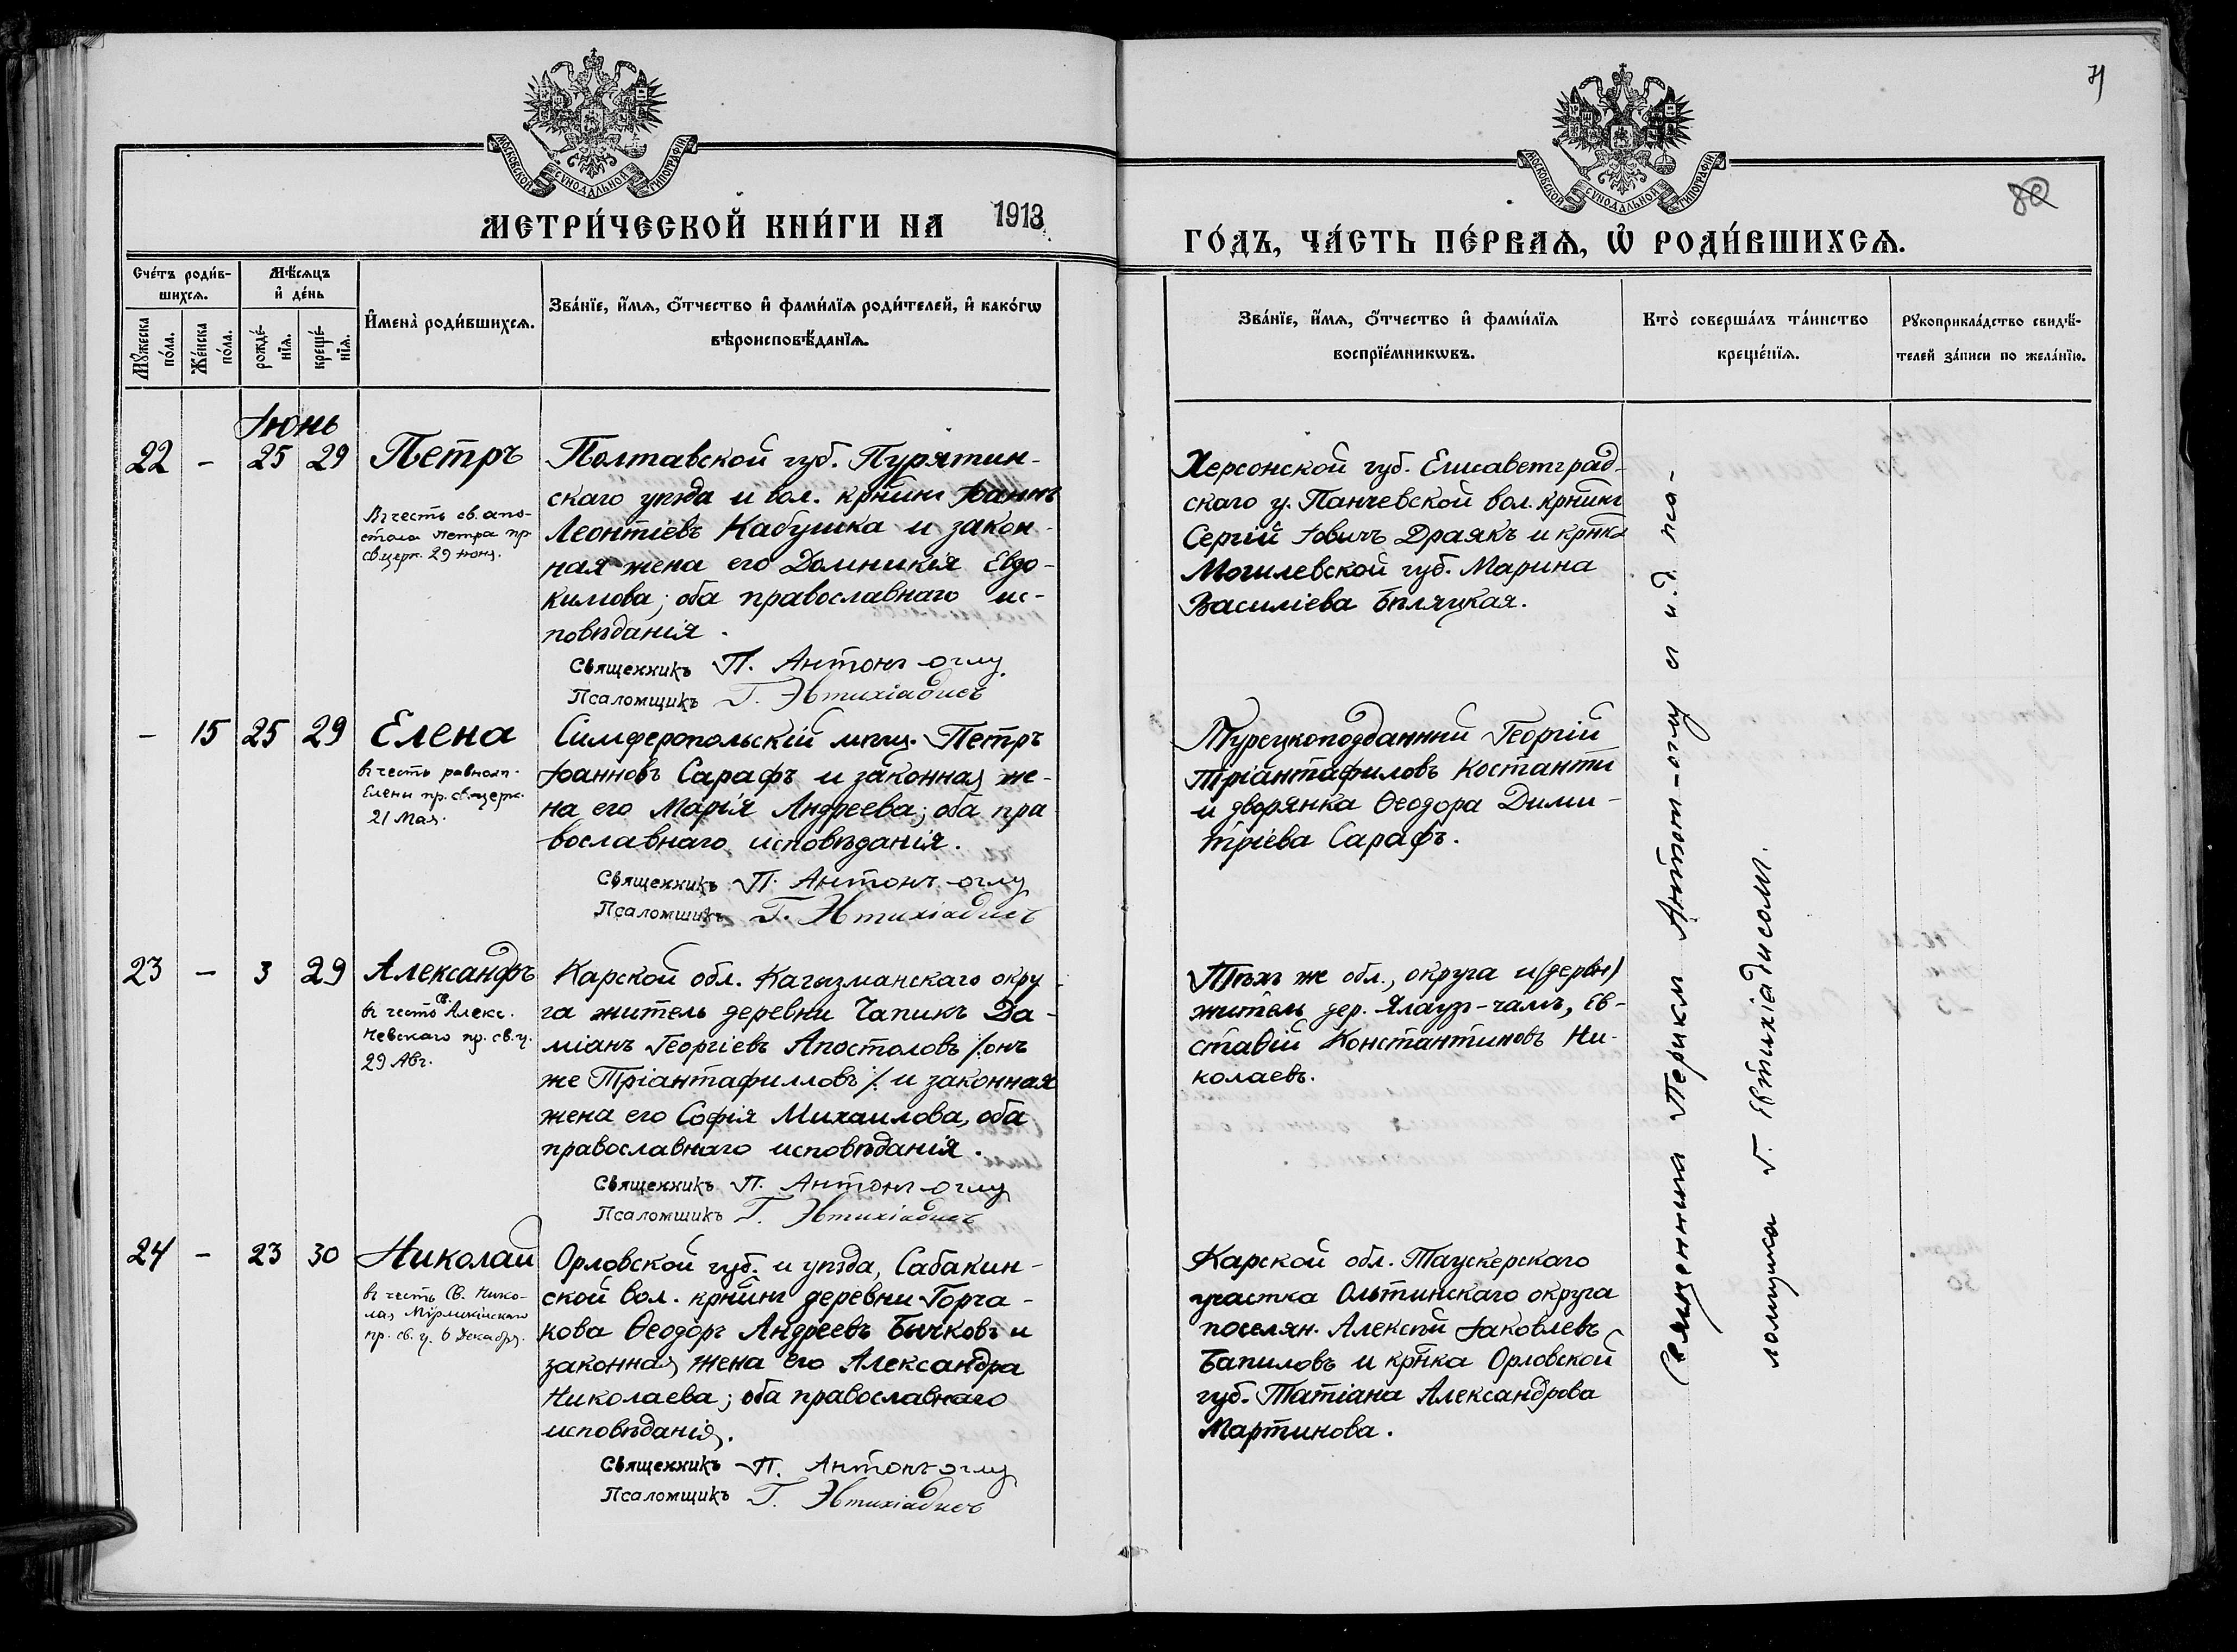 71
80
МОСКОВСКОЙ СУНОДАЛЬНОЙ ТИПОГРАФІИ
МОСКОВСКОЙ СУНОДАЛЬНОЙ ТИПОГРАФІИ
МЕТРИ́ЧЕСКОЙ КНИ́ГИ НА 1913
ГО́ДЪ, ЧА́СТЬ ПЕ́РВАѦ, Ѽ РОДИ́ВШИХСѦ.
Сче́тъ роди́в-
шихсѧ.
Мѣ́сѧцъ
и҆ де́нь
Мꙋ́жеска
по́ла.
Же́нска
по́ла.
рожде́-
нїѧ.
креще́-
нїѧ.
И҆мена̀ роди́вшихсѧ.
Зва́нїе, и҆́мѧ, ѻ҆́тчество и҆ фами́лїѧ роди́телей, и҆ како́гѡ
вѣроисповѣ́данїѧ.
Зва́нїе, и҆́мѧ, ѻ҆́тчество и҆ фами́лїѧ
воспрїе́мникѡвъ.
Кто̀ соверша́лъ та́инство
креще́нїѧ.
Рꙋкоприкла́дство свидѣ́-
телей за́писи по жела́нїю.
Іюнь
22 - 25 29 Петръ
Въ честь св. апо-
стола Петра пр.
св. церк. 29 Іюня.
Полтавской губ. Пурятин-
скаго уѣзда и вол. крнинъ Іоаннъ
Леонтіевъ Кабушка и закон-
ная жена его Домникія Евдо-
кимова; оба православнаго ис-
повѣданія.
Священникъ П. Антонъ-оглу
Псаломщикъ Г. Эвтихіадисъ
Херсонской губ. Елисаветград-
скаго у. Панчевской вол. крнинъ
Сергій Іовичъ Драякъ и крнка
Могилевской губ. Марина
Василіева Бѣляцкая.
- 15 25 29 Елена
въ честь равноап.
Елени пр. св. церк.
21 Мая.
Симферопольскій мѣщ. Петръ
Іоанновъ Сарафъ и законная же-
на его Марія Андреева; оба пра-
вославнаго исповѣданія.
Священникъ П. Антонъ-оглу
Псаломщикъ Г. Эвтихіадисъ
Турецкоподданний Георгій
Тріантафиловъ Костанти
и дворянка Ѳеодора Дими-
тріева Сарафъ.
23 - 3 29 Александръ
въ честь Св. Алекс.
Невскаго пр. св. ц.
29 Авг.
Карской обл. Кагызманскаго окру-
га житель деревни Чапикъ Да-
міанъ Георгіевъ Апостоловъ /:онъ
же Тріантафилловъ:/ и законная
жена его Софія Михаилова, оба
православнаго исповѣданія.
Священникъ П. Антонъ-оглу
Псаломщикъ Г. Эвтихіадисъ
Тѣхъ же обл., округа и (дервн)
житель дер. Ялауз-чамъ, Ев-
стафій Константиновъ Ни-
колаевъ.
24 - 23 30 Николай
въ честь Св. Нико-
лая Мѵрликійскаго
пр. св. ц. 6 Декабря.
Орловской губ. и уѣзда, Сабакин-
ской вол. крнинъ деревни Горча-
кова Ѳеодоръ Андреевъ Бычковъ и
законная жена его Александра
Николаева; оба православнаго
исповѣданія.
Священникъ П. Антонъ-оглу
Псаломщикъ Г. Эвтихіадисъ
Карской обл. Таускерскаго
участка Ольтинскаго округа
поселян. Алексѣй Іаковлевъ
Бапиловъ и крнка Орловской
губ. Татіана Александрова
Мартинова.
Священникъ Периклъ Антонъ-оглу съ и. д. пса-
ломщика Г. Евтихіадисомъ.